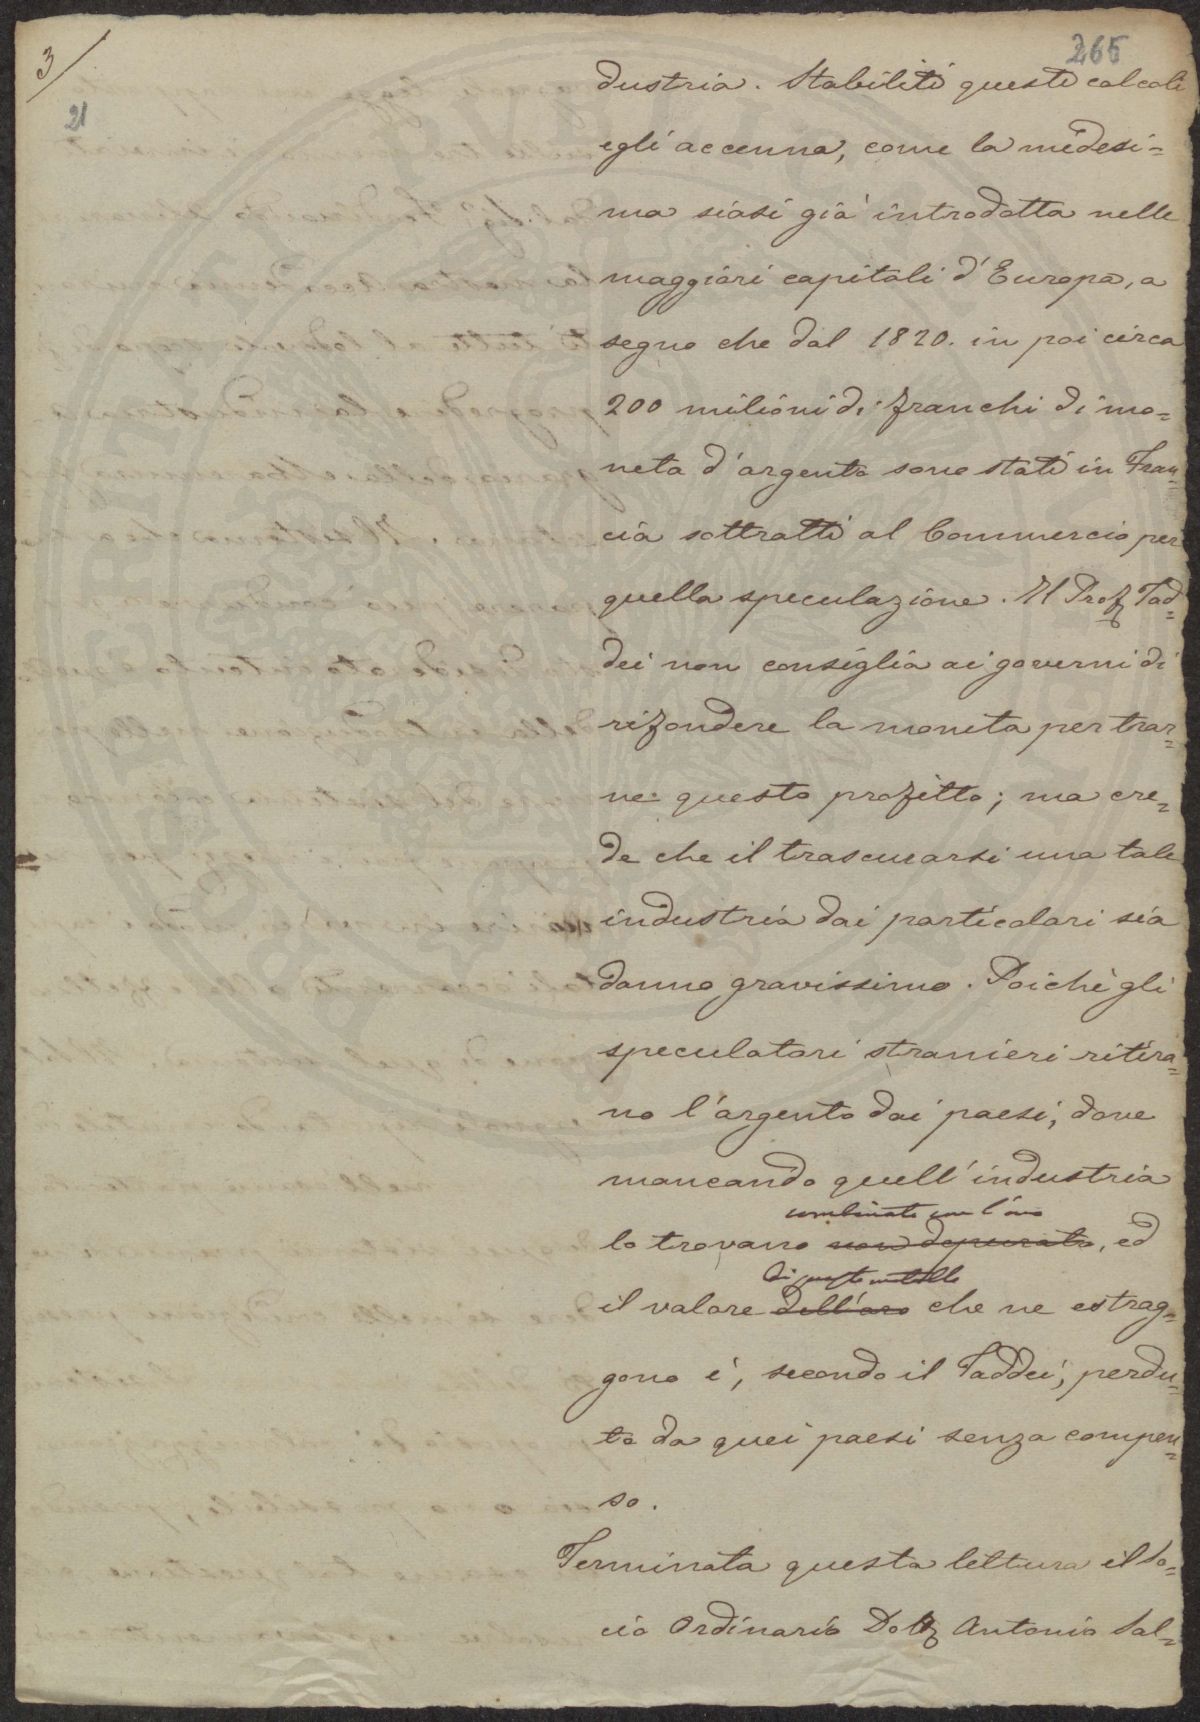 3/
265
21
dustria. Stabiliti questi calcoli
egli accenna, come la medesi=
ma siasi già introdotta nelle
maggiori capitali d'Europa, a
segno che dal 1820. in poi circa
200 milioni di franchi di mo=
neta d'argento sono stati in Fran=
cia sottratti al Commercio per
quella speculazione. Il Prof Tad=
dei non consiglia ai governi di
rifondere la moneta per trar=
ne questo profitto; ma cre=
de che il trascurarsi una tale
industria dai particolari sia
danno gravissimo. Poichè gli
speculatori stranieri ritira=
no l'argento dai paesi, dove
mancando quell'industria
combinato con l'oro
lo trovano non depurato, ed
di questo metallo
il valore dell'oro che ne estrag=
gono è, secondo il Taddei, perdu=
to da quei paesi senza compen=
so.
Terminata questa lettura il So=
cio Ordinario Dott Antonio Sal=